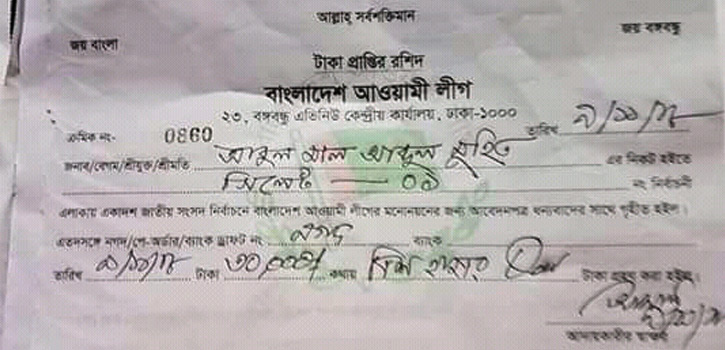 আল্লাহ্ সর্বশক্তিমান
জয় বাংলা
জয় বঙ্গবন্ধু
টাকা প্রাপ্তির রশিদ
বাংলাদেশ আওয়ামী লীগ
২৩, বঙ্গবন্ধু এভিনিউ কেন্দ্রীয় কার্যালয়, ঢাকা-১০০০
ক্রমিক নং- 0860 তারিখ ৯/১১/১৮
জনাব/বেগম/শ্রীযুক্ত/শ্রীমতি আবুল মাল আব্দুল মুহিত এর নিকট হইতে
সিলেট — ০১ নং নির্বাচনী
এলাকায় একাদশ জাতীয় সংসদ নির্বাচনে বাংলাদেশ আওয়ামী লীগের মনোনয়নের জন্য আবেদনপত্র ধন্যবাদের সাথে গৃহীত হইল।
এতদসঙ্গে নগদ/পে-অর্ডার/ব্যাংক ড্রাফট নং নগদ ব্যাংক
তারিখ ৯/১১/১৮ টাকা ৩০,০০০/- কথায় ত্রিশ হাজার টাকা গ্রহণ করা হইল।
৯/১১/১৮
আদায়কারীর স্বাক্ষর